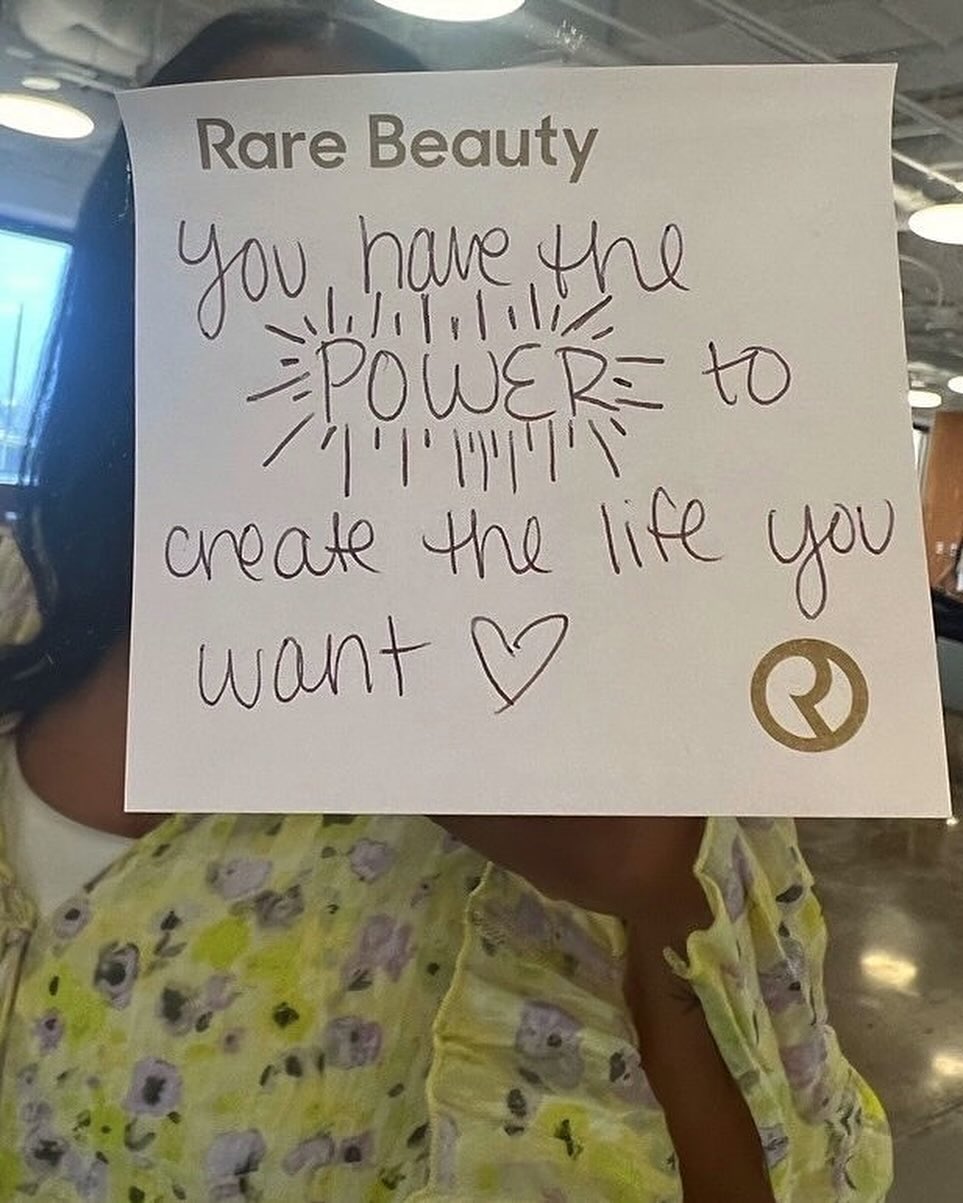 Rare Beauty
you have the
POWER to
create the life you
want ♡
R